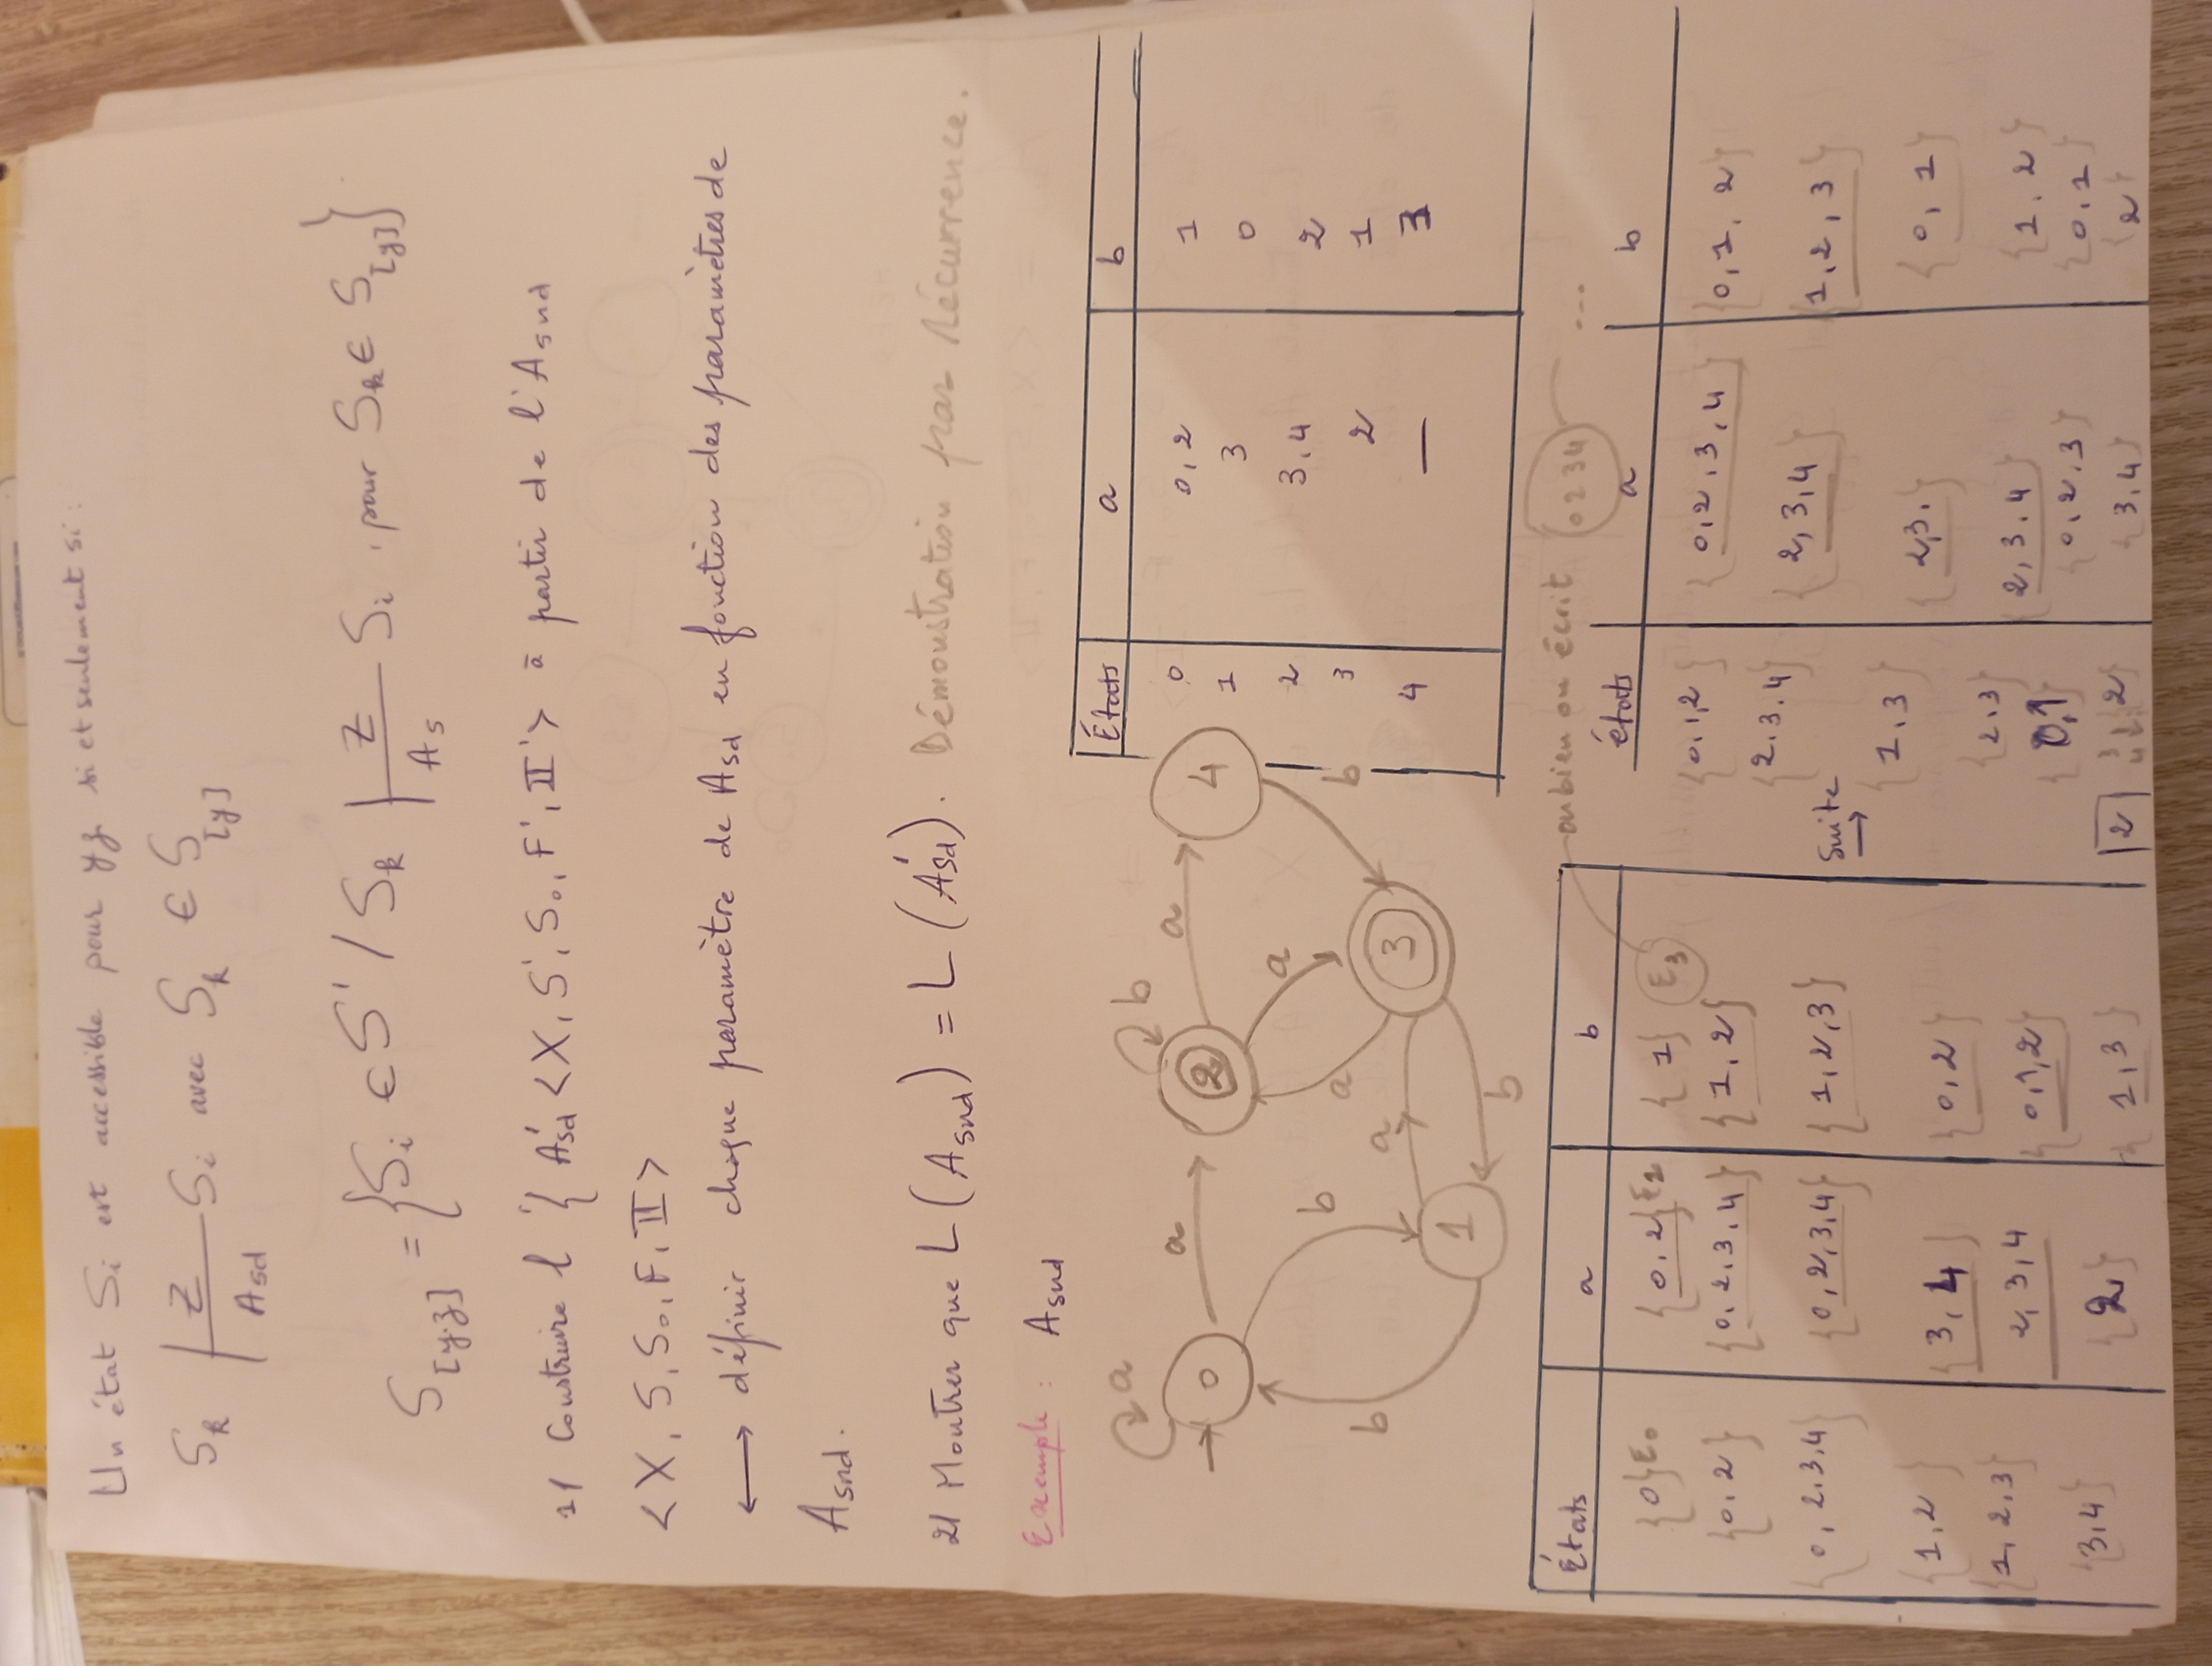 Un état Si est accessible pour yz si et seulement si :
Sk |z/Asd Si avec Sk ∈ S[y]
S[y.z] = {Si ∈ S' / Sk |z/As Si , pour Sk ∈ S[y]}
1/ Construire l'{ A'sd <X, S', So, F', II'> à partir de l'Asnd
<X, S, So, F, II>
⟷ définir chaque paramètre de Asd en fonction des paramètres de
Asnd.
2/ Montrer que L(Asnd) = L(A'sd). Démonstration par Récurrence.
Exemple : Asnd
a
b
→ 0 a 2 a 4
b b a a b
a
1 3
b
États a b
0 0,2 1
1 3 0
2 3,4 2
3 2 1
4 — 3
ou bien on écrit 0234 ...
États a b
{0}E0 {0,2}E2 {1} E3
{0,2} {0,2,3,4} {1,2}
{0,2.3,4} {0,2,3,4} {1,2,3}
{1,2} {3,4} {0,2}
{1,2,3} 2,3,4 {0,1,2}
{3,4} {2} {1,3}
Suite →
états a b
{0,1,2} {0,2,3,4} {0,1,2}
{2.3.4} {2,3,4} {1,2,3}
{1,3} {2,3.} {0,1}
{2.3} {2,3.4} {1.2}
{0,1} {0,2,3} {0,1}
2 {2} {3,4} {2}